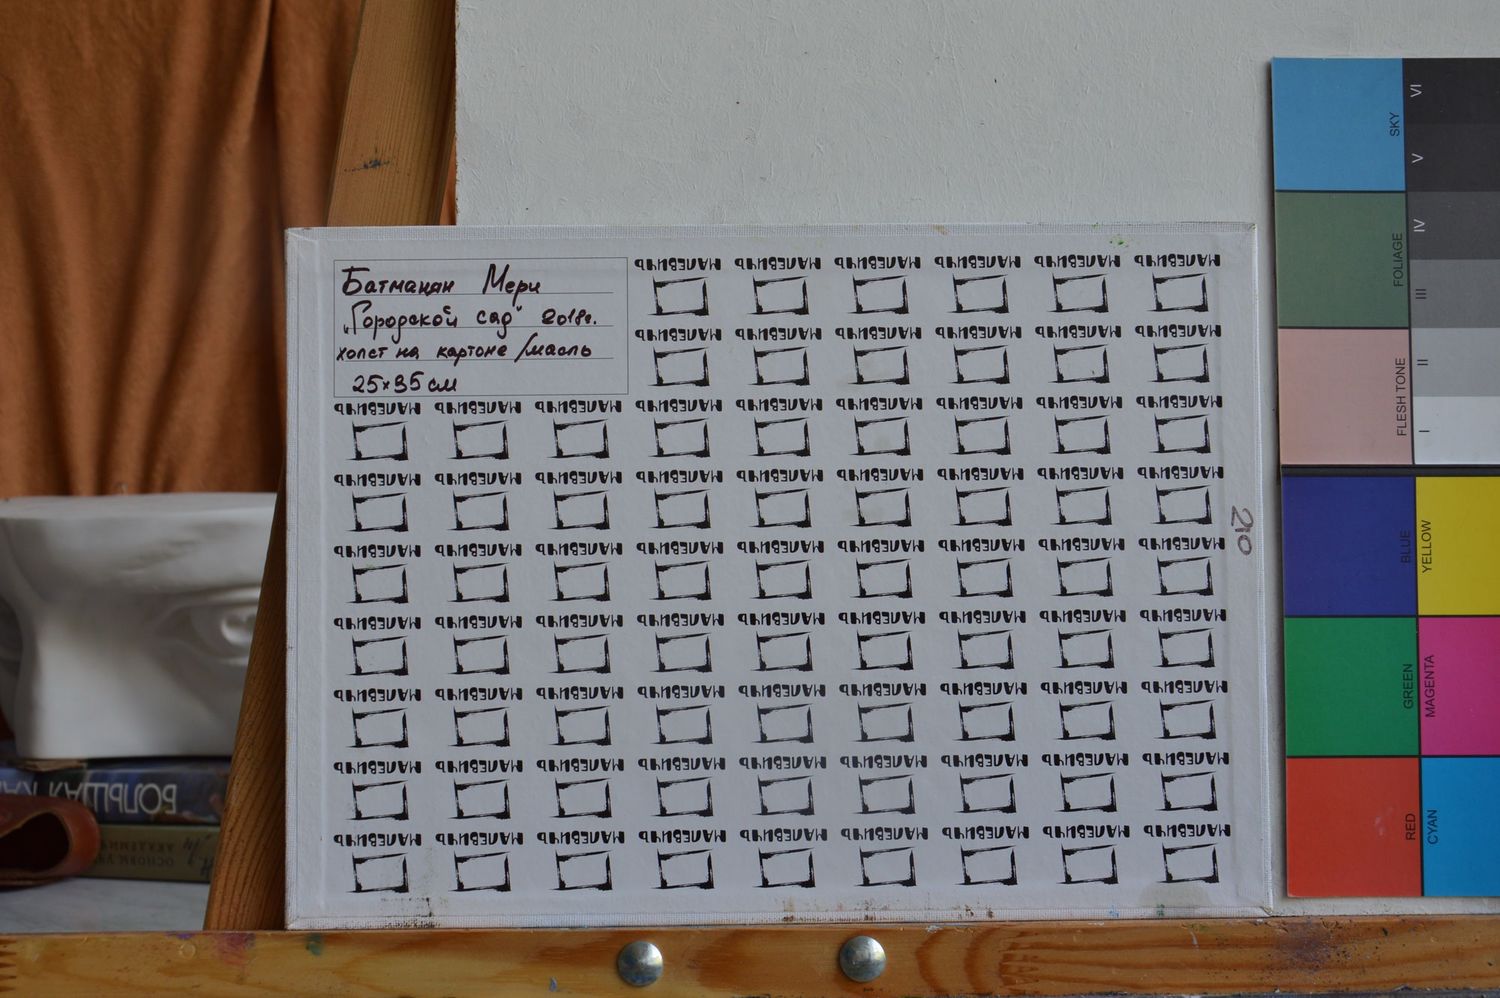 Батманян Мери
„Городской сад" 2018г.
холст на картоне/масло
25х35 см
МАЛЕВИЧЪ МАЛЕВИЧЪ МАЛЕВИЧЪ МАЛЕВИЧЪ МАЛЕВИЧЪ МАЛЕВИЧЪ
МАЛЕВИЧЪ МАЛЕВИЧЪ МАЛЕВИЧЪ МАЛЕВИЧЪ МАЛЕВИЧЪ МАЛЕВИЧЪ
МАЛЕВИЧЪ МАЛЕВИЧЪ МАЛЕВИЧЪ МАЛЕВИЧЪ МАЛЕВИЧЪ МАЛЕВИЧЪ МАЛЕВИЧЪ МАЛЕВИЧЪ МАЛЕВИЧЪ
МАЛЕВИЧЪ МАЛЕВИЧЪ МАЛЕВИЧЪ МАЛЕВИЧЪ МАЛЕВИЧЪ МАЛЕВИЧЪ МАЛЕВИЧЪ МАЛЕВИЧЪ МАЛЕВИЧЪ
МАЛЕВИЧЪ МАЛЕВИЧЪ МАЛЕВИЧЪ МАЛЕВИЧЪ МАЛЕВИЧЪ МАЛЕВИЧЪ МАЛЕВИЧЪ МАЛЕВИЧЪ МАЛЕВИЧЪ
МАЛЕВИЧЪ МАЛЕВИЧЪ МАЛЕВИЧЪ МАЛЕВИЧЪ МАЛЕВИЧЪ МАЛЕВИЧЪ МАЛЕВИЧЪ МАЛЕВИЧЪ МАЛЕВИЧЪ
МАЛЕВИЧЪ МАЛЕВИЧЪ МАЛЕВИЧЪ МАЛЕВИЧЪ МАЛЕВИЧЪ МАЛЕВИЧЪ МАЛЕВИЧЪ МАЛЕВИЧЪ МАЛЕВИЧЪ
МАЛЕВИЧЪ МАЛЕВИЧЪ МАЛЕВИЧЪ МАЛЕВИЧЪ МАЛЕВИЧЪ МАЛЕВИЧЪ МАЛЕВИЧЪ МАЛЕВИЧЪ МАЛЕВИЧЪ
МАЛЕВИЧЪ МАЛЕВИЧЪ МАЛЕВИЧЪ МАЛЕВИЧЪ МАЛЕВИЧЪ МАЛЕВИЧЪ МАЛЕВИЧЪ МАЛЕВИЧЪ МАЛЕВИЧЪ
210
БОЛЬШАЯ
ОСНОВЫ
SKY
VI
V
FOLIAGE
IV
III
FLESH TONE
II
I
BLUE
YELLOW
GREEN
MAGENTA
RED
CYAN